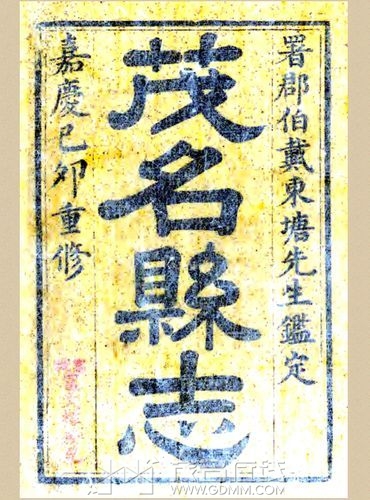 署郡伯戴東塘先生鑑定
茂名縣志
嘉慶己卯重修
WWW.GDMM.COM